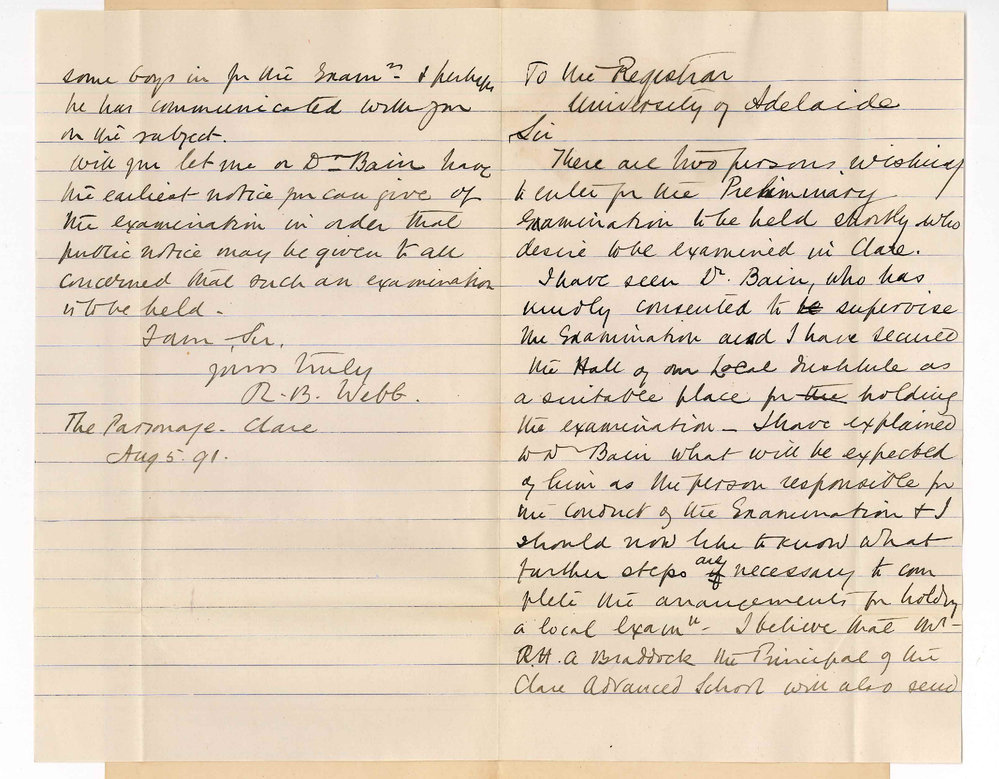 To the Registrar
University of Adelaide
Sir
There are two persons wishing
to enter for the Preliminary
Examination to be held shortly who
desire to be examined in Clare.
I have seen Dr. Bain, who has
kindly consented to be supervise
the Examination and I have secured
the Hall of our Local Institute as
a suitable place for the holding
the examination – I have explained
to Dr Bain what will be expected
of him as the person responsible for
the conduct of the Examination & I
should now like to know what
further steps are if necessary to com
plete the arrangements for holding
a local Examn – I believe that Mr
R.H.A Braddock the Principal of the
Clare Advanced School will also send
some boys in for the Examn – & perhaps
he has communicated with you
on the subject.
Will you let me or Dr Bain have
the earliest notice you can give of
the examination in order that
public notice may be given to all
concerned that such an examination
is to be held –
I am, Sir,
yours truly
R. B. Webb.
The Parsonage – Clare
Aug 5. 91.